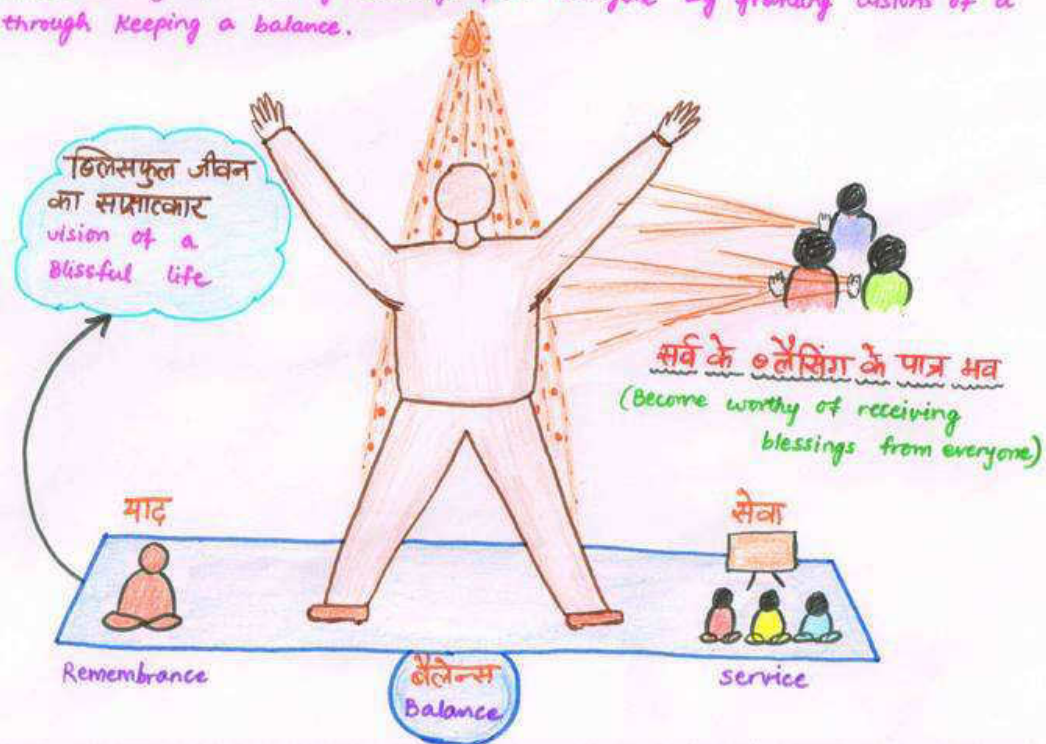 by granting visions of a
through keeping a balance.
ब्लिसफुल जीवन
का साक्षात्कार
vision of a
Blissful life
सर्व के ब्लैसिंग के पात्र भव
(Become worthy of receiving
blessings from everyone)
याद
सेवा
Remembrance
service
बैलेन्स
Balance